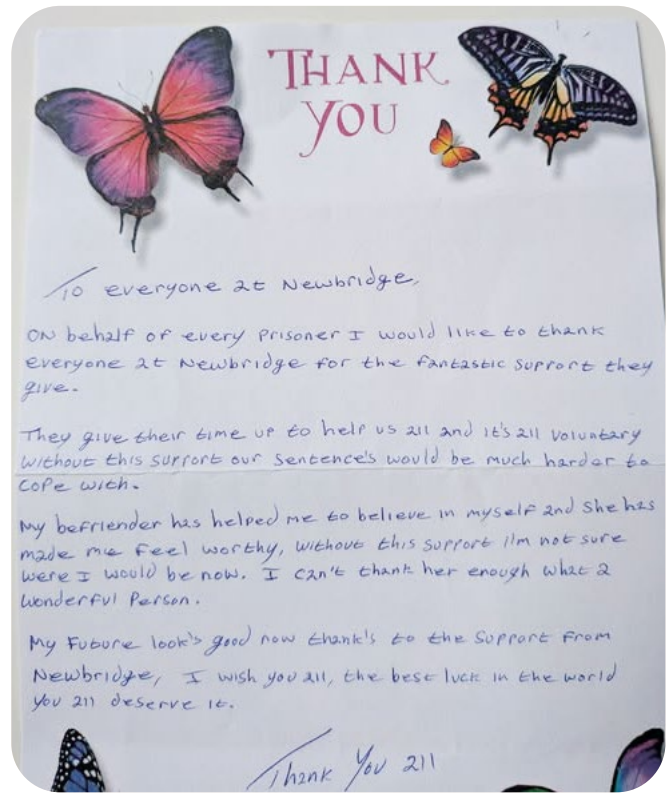 THANK
YOU
To everyone at Newbridge,
ON behalf of every Prisoner I would like to thank
everyone at Newbridge for the fantastic support they
give.
They give their time up to help us all and it's all voluntary
without this support our sentence's would be much harder to
cope with.
My befriender has helped me to believe in myself and she has
made me feel worthy, without this support I'm not sure
were I would be now. I can't thank her enough what a
wonderful Person.
My Future look's good now thank's to the support from
Newbridge, I wish you all, the best luck in the world
you all deserve it.
Thank You all